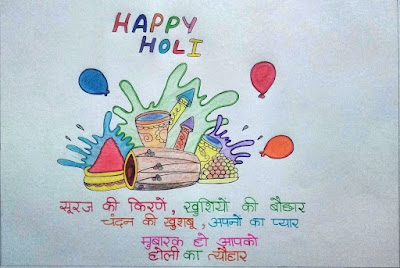 HAPPY
HOLI
सूरज की किरणें, खुशियों की बौछार
चंदन की खुशबू, अपनों का प्यार
मुबारक हो आपको
होली का त्यौहार